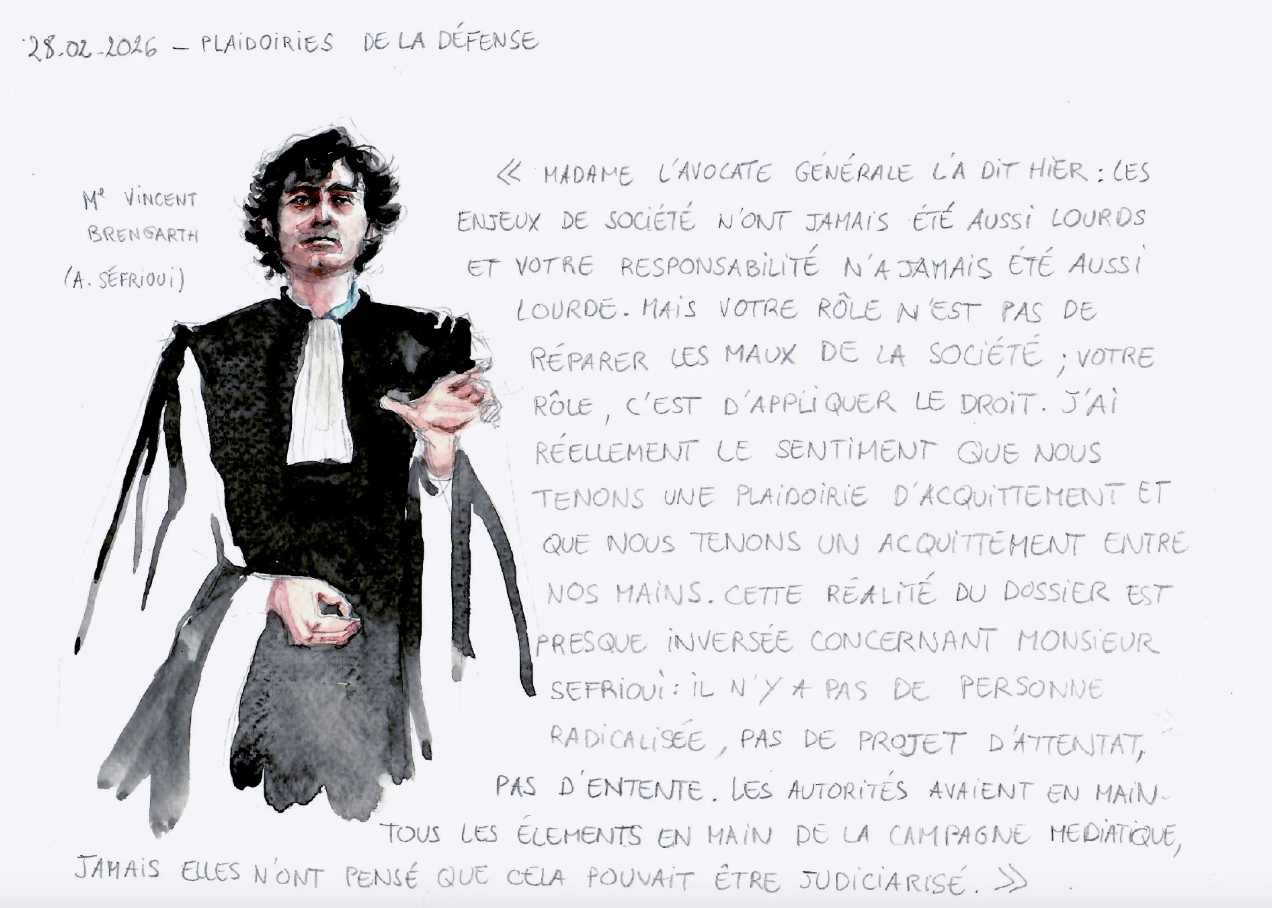 28-02-2026 – PLAIDOIRIES DE LA DÉFENSE
Me VINCENT
BRENGARTH
(A. SÉFRIOUI)
« MADAME L'AVOCATE GÉNÉRALE L'A DIT HIER : LES
ENJEUX DE SOCIÉTÉ N'ONT JAMAIS ÉTÉ AUSSI LOURDS
ET VOTRE RESPONSABILITÉ N'A JAMAIS ÉTÉ AUSSI
LOURDE. MAIS VOTRE RÔLE N'EST PAS DE
RÉPARER LES MAUX DE LA SOCIÉTÉ ; VOTRE
RÔLE, C'EST D'APPLIQUER LE DROIT. J'AI
RÉELLEMENT LE SENTIMENT QUE NOUS
TENONS UNE PLAIDOIRIE D'ACQUITTEMENT ET
QUE NOUS TENONS UN ACQUITTEMENT ENTRE
NOS MAINS. CETTE RÉALITÉ DU DOSSIER EST
PRESQUE INVERSÉE CONCERNANT MONSIEUR
SEFRIOUI : IL N'Y A PAS DE PERSONNE
RADICALISÉE, PAS DE PROJET D'ATTENTAT,
PAS D'ENTENTE. LES AUTORITÉS AVAIENT EN MAIN
TOUS LES ÉLEMENTS EN MAIN DE LA CAMPAGNE MEDIATIQUE,
JAMAIS ELLES N'ONT PENSÉ QUE CELA POUVAIT ÊTRE JUDICIARISÉ. »